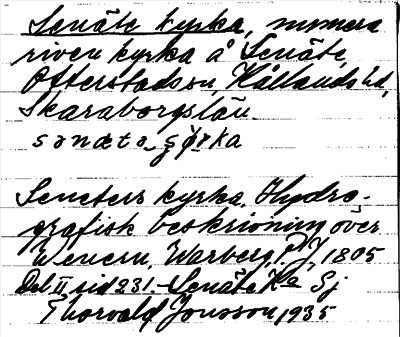 Senäte kyrka, numera
riven kyrka å Senäte,
Otterstads sn, Kållands hd,
Skaraborgs län.
sɘnætɘ_ȿɣrka
Seneters kyrka. Hydro-
grafisk beskrivning över
Wenern, Warberg, P. J, 1805
Del II sid 231. - Senäte Ka Sj
Thorvald Jonsson, 1935